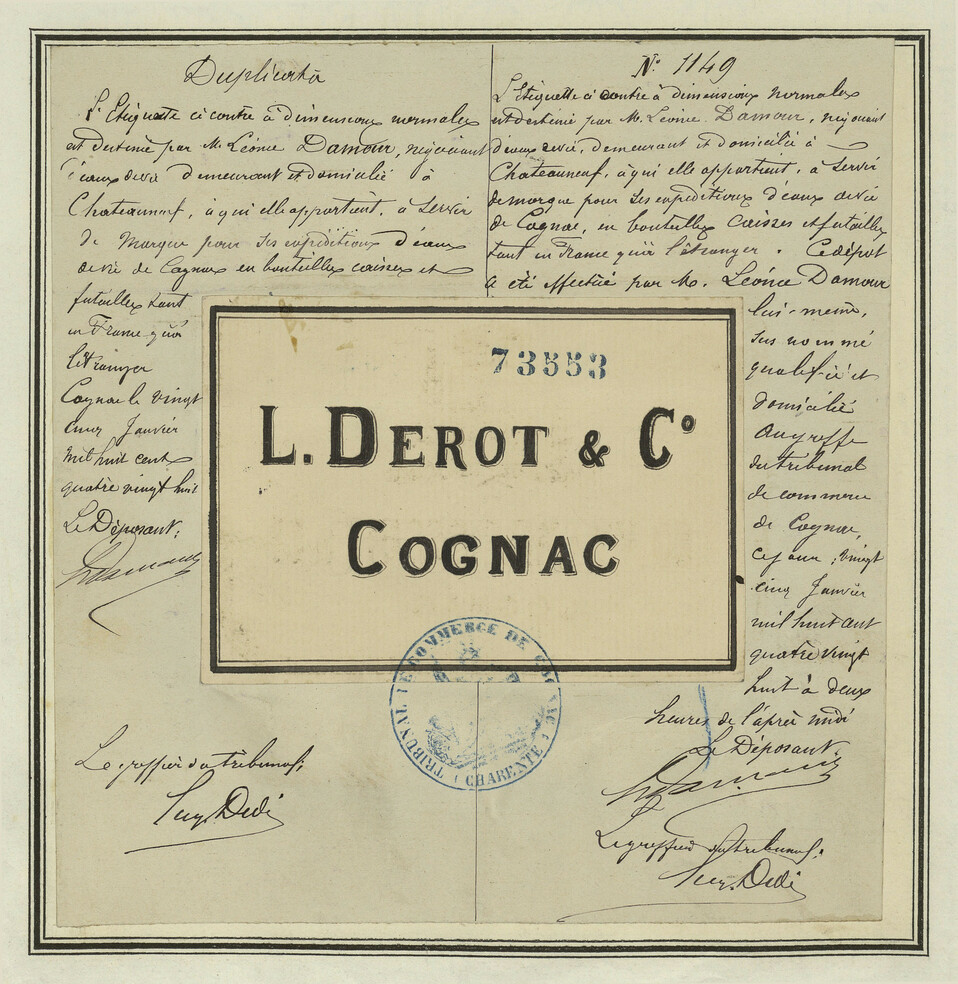 Duplicata
L'Etiquette ci contre à dimensions normales
est destinée par M. Léonce Damour, négociant
d'eaux de vie demeurant et domicilié à
Chateauneuf, à qui elle appartient, à servir
de Marque pour ses expéditions d'eaux
de vie de Cognac en bouteilles caisses et
futailles tant
en France qu'à
l'étranger
Cognac le vingt
cinq Janvier
mil huit cent
quatre vingt huit
Le Déposant:
LDamour
Le greffier du tribunal:
N° 1149
L'Etiquette ci contre à dimensions normales
est destinée par M. Léonce Damour, négociant
d'eaux de vie, demeurant et domicilié à
Chateauneuf, à qui elle appartient, à servir
de marque pour ses expéditions d'eaux de vie
de Cognac, en bouteilles caisses et futailles
tant en France qu'à l'étranger. Ce dépôt
a été effectué par M. Léonce Damour
lui-même,
sus nommé
qualifié et
domicilié
au greffe
du tribunal
de commerce
de Cognac,
ce jour: vingt
cinq Janvier
mil huit cent
quatre vingt
huit à deux
heures de l'après midi
Le Déposant:
LDamour
Le greffier du tribunal:
73553
L. DEROT & Co
COGNAC
TRIBUNAL DE COMMERCE DE COGNAC (CHARENTE)